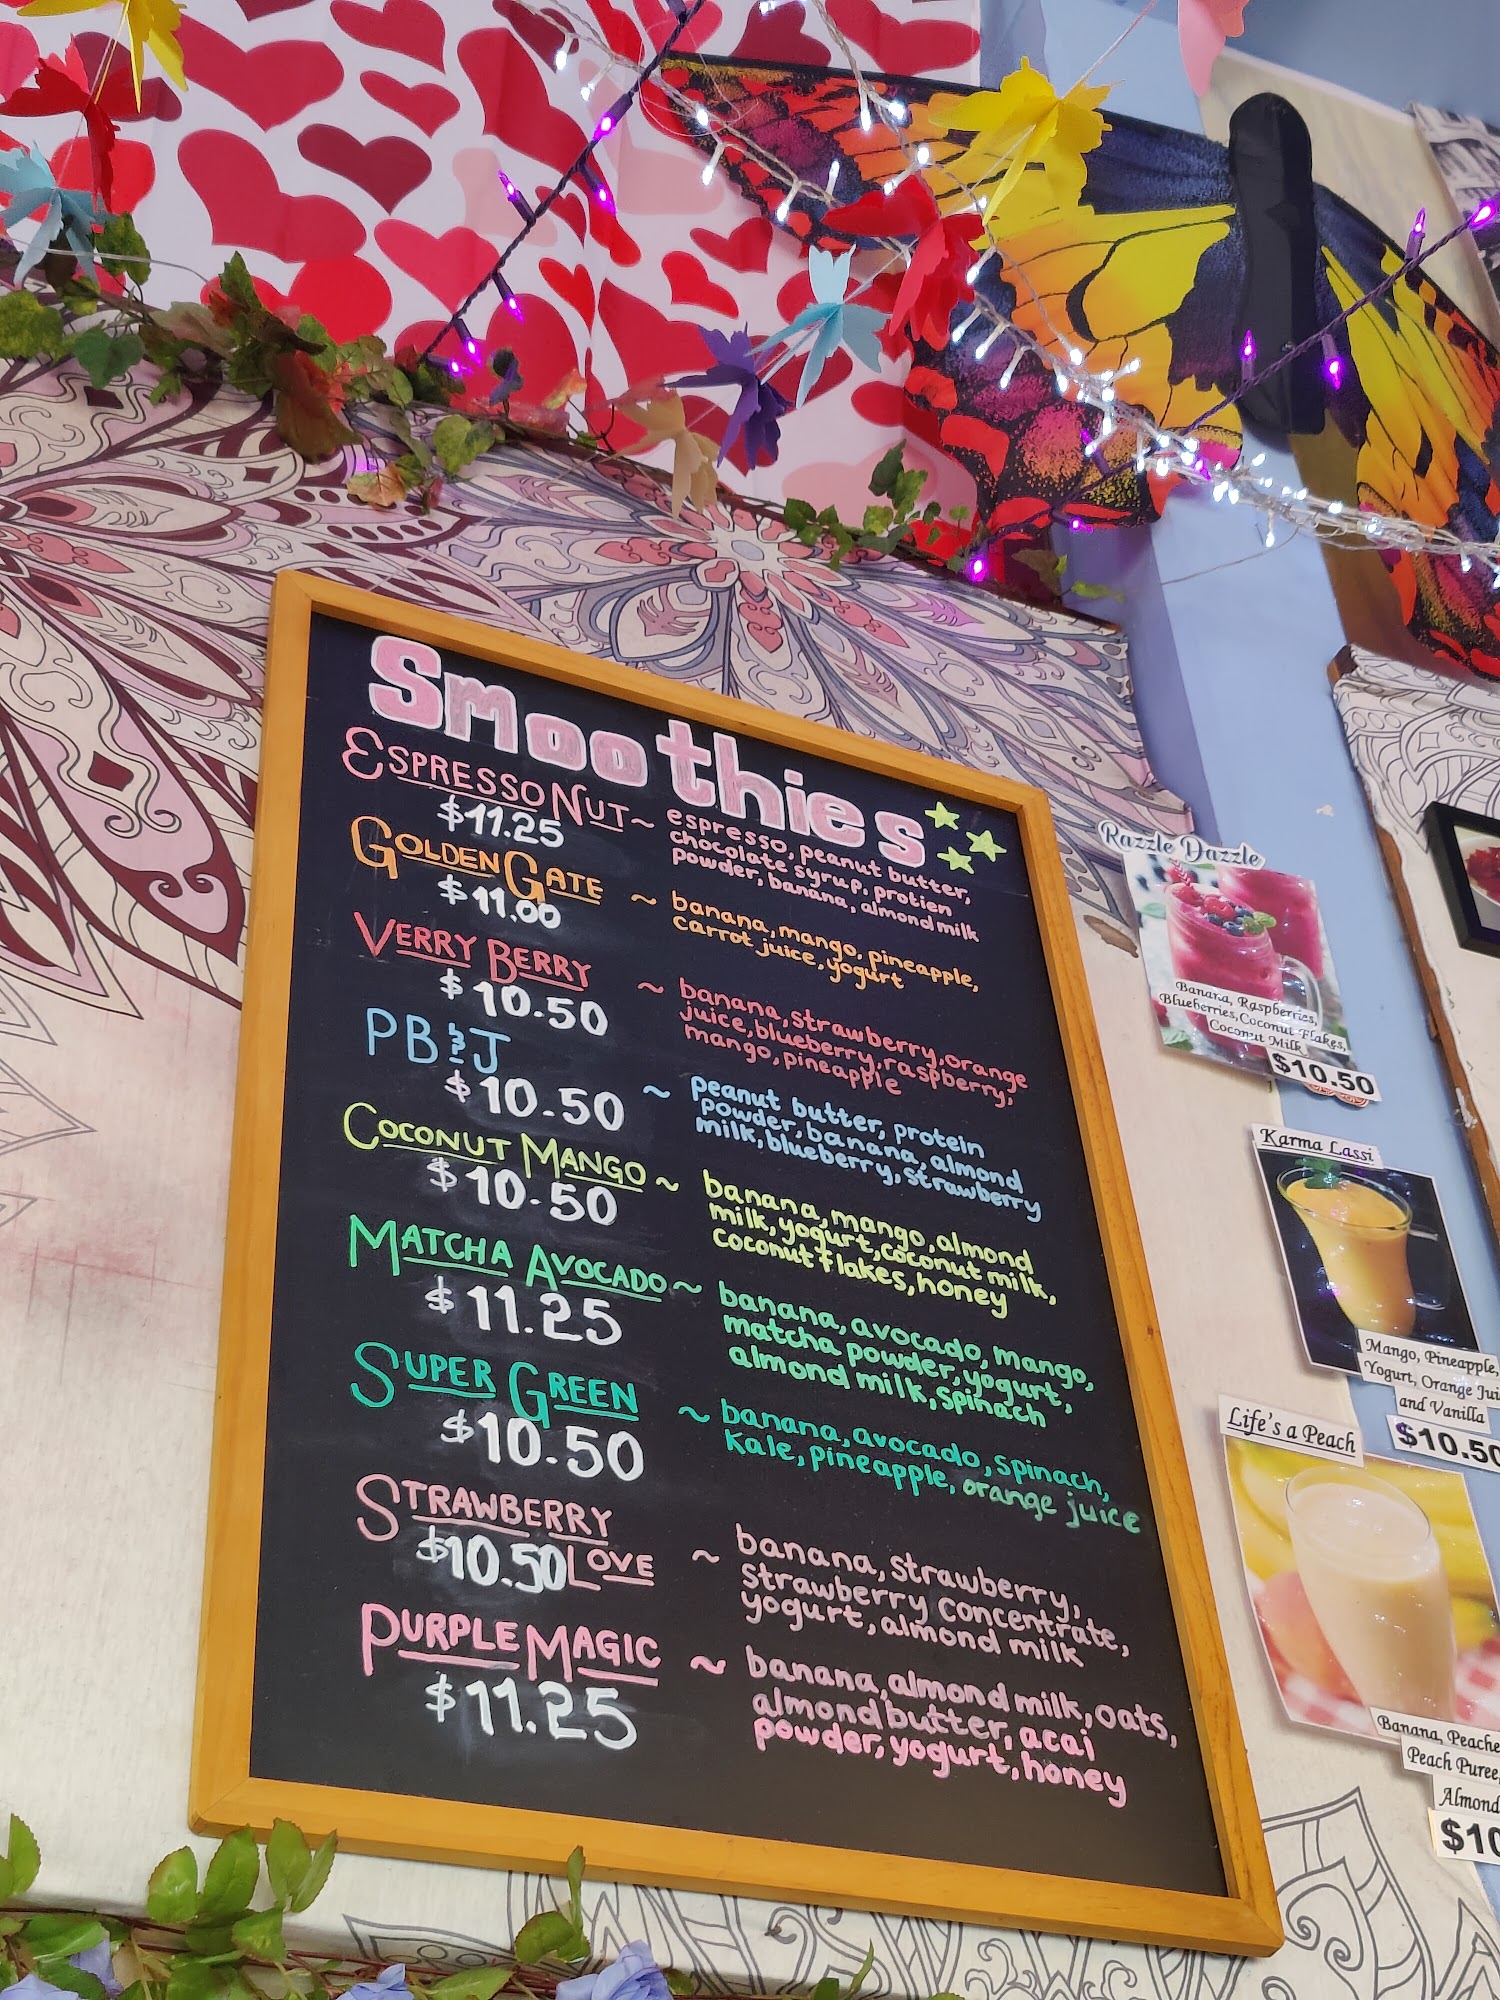 Smoothies
ESPRESSO NUT ~ espresso, peanut butter,
$11.25 chocolate syrup, protien
powder, banana, almond milk
GOLDEN GATE ~ banana, mango, pineapple,
$11.00 carrot juice, yogurt
VERRY BERRY ~ banana, strawberry, orange
$10.50 juice, blueberry, raspberry,
mango, pineapple
PB&J ~ peanut butter, protein
$10.50 powder, banana, almond
milk, blueberry, strawberry
COCONUT MANGO ~ banana, mango, almond
$10.50 milk, yogurt, coconut milk,
coconut flakes, honey
MATCHA AVOCADO ~ banana, avocado, mango,
$11.25 matcha powder, yogurt,
almond milk, spinach
SUPER GREEN ~ banana, avocado, spinach,
$10.50 kale, pineapple, orange juice
STRAWBERRY ~ banana, strawberry,
$10.50 LOVE strawberry concentrate,
yogurt, almond milk
PURPLE MAGIC ~ banana, almond milk, oats,
$11.25 almond butter, acai
powder, yogurt, honey
Razzle Dazzle
Banana, Raspberries,
Blueberries, Coconut Flakes,
Coconut Milk
$10.50
Karma Lassi
Mango, Pineapple,
Yogurt, Orange Jui
and Vanilla
$10.50
Life's a Peach
Banana, Peache
Peach Puree,
Almond
$10